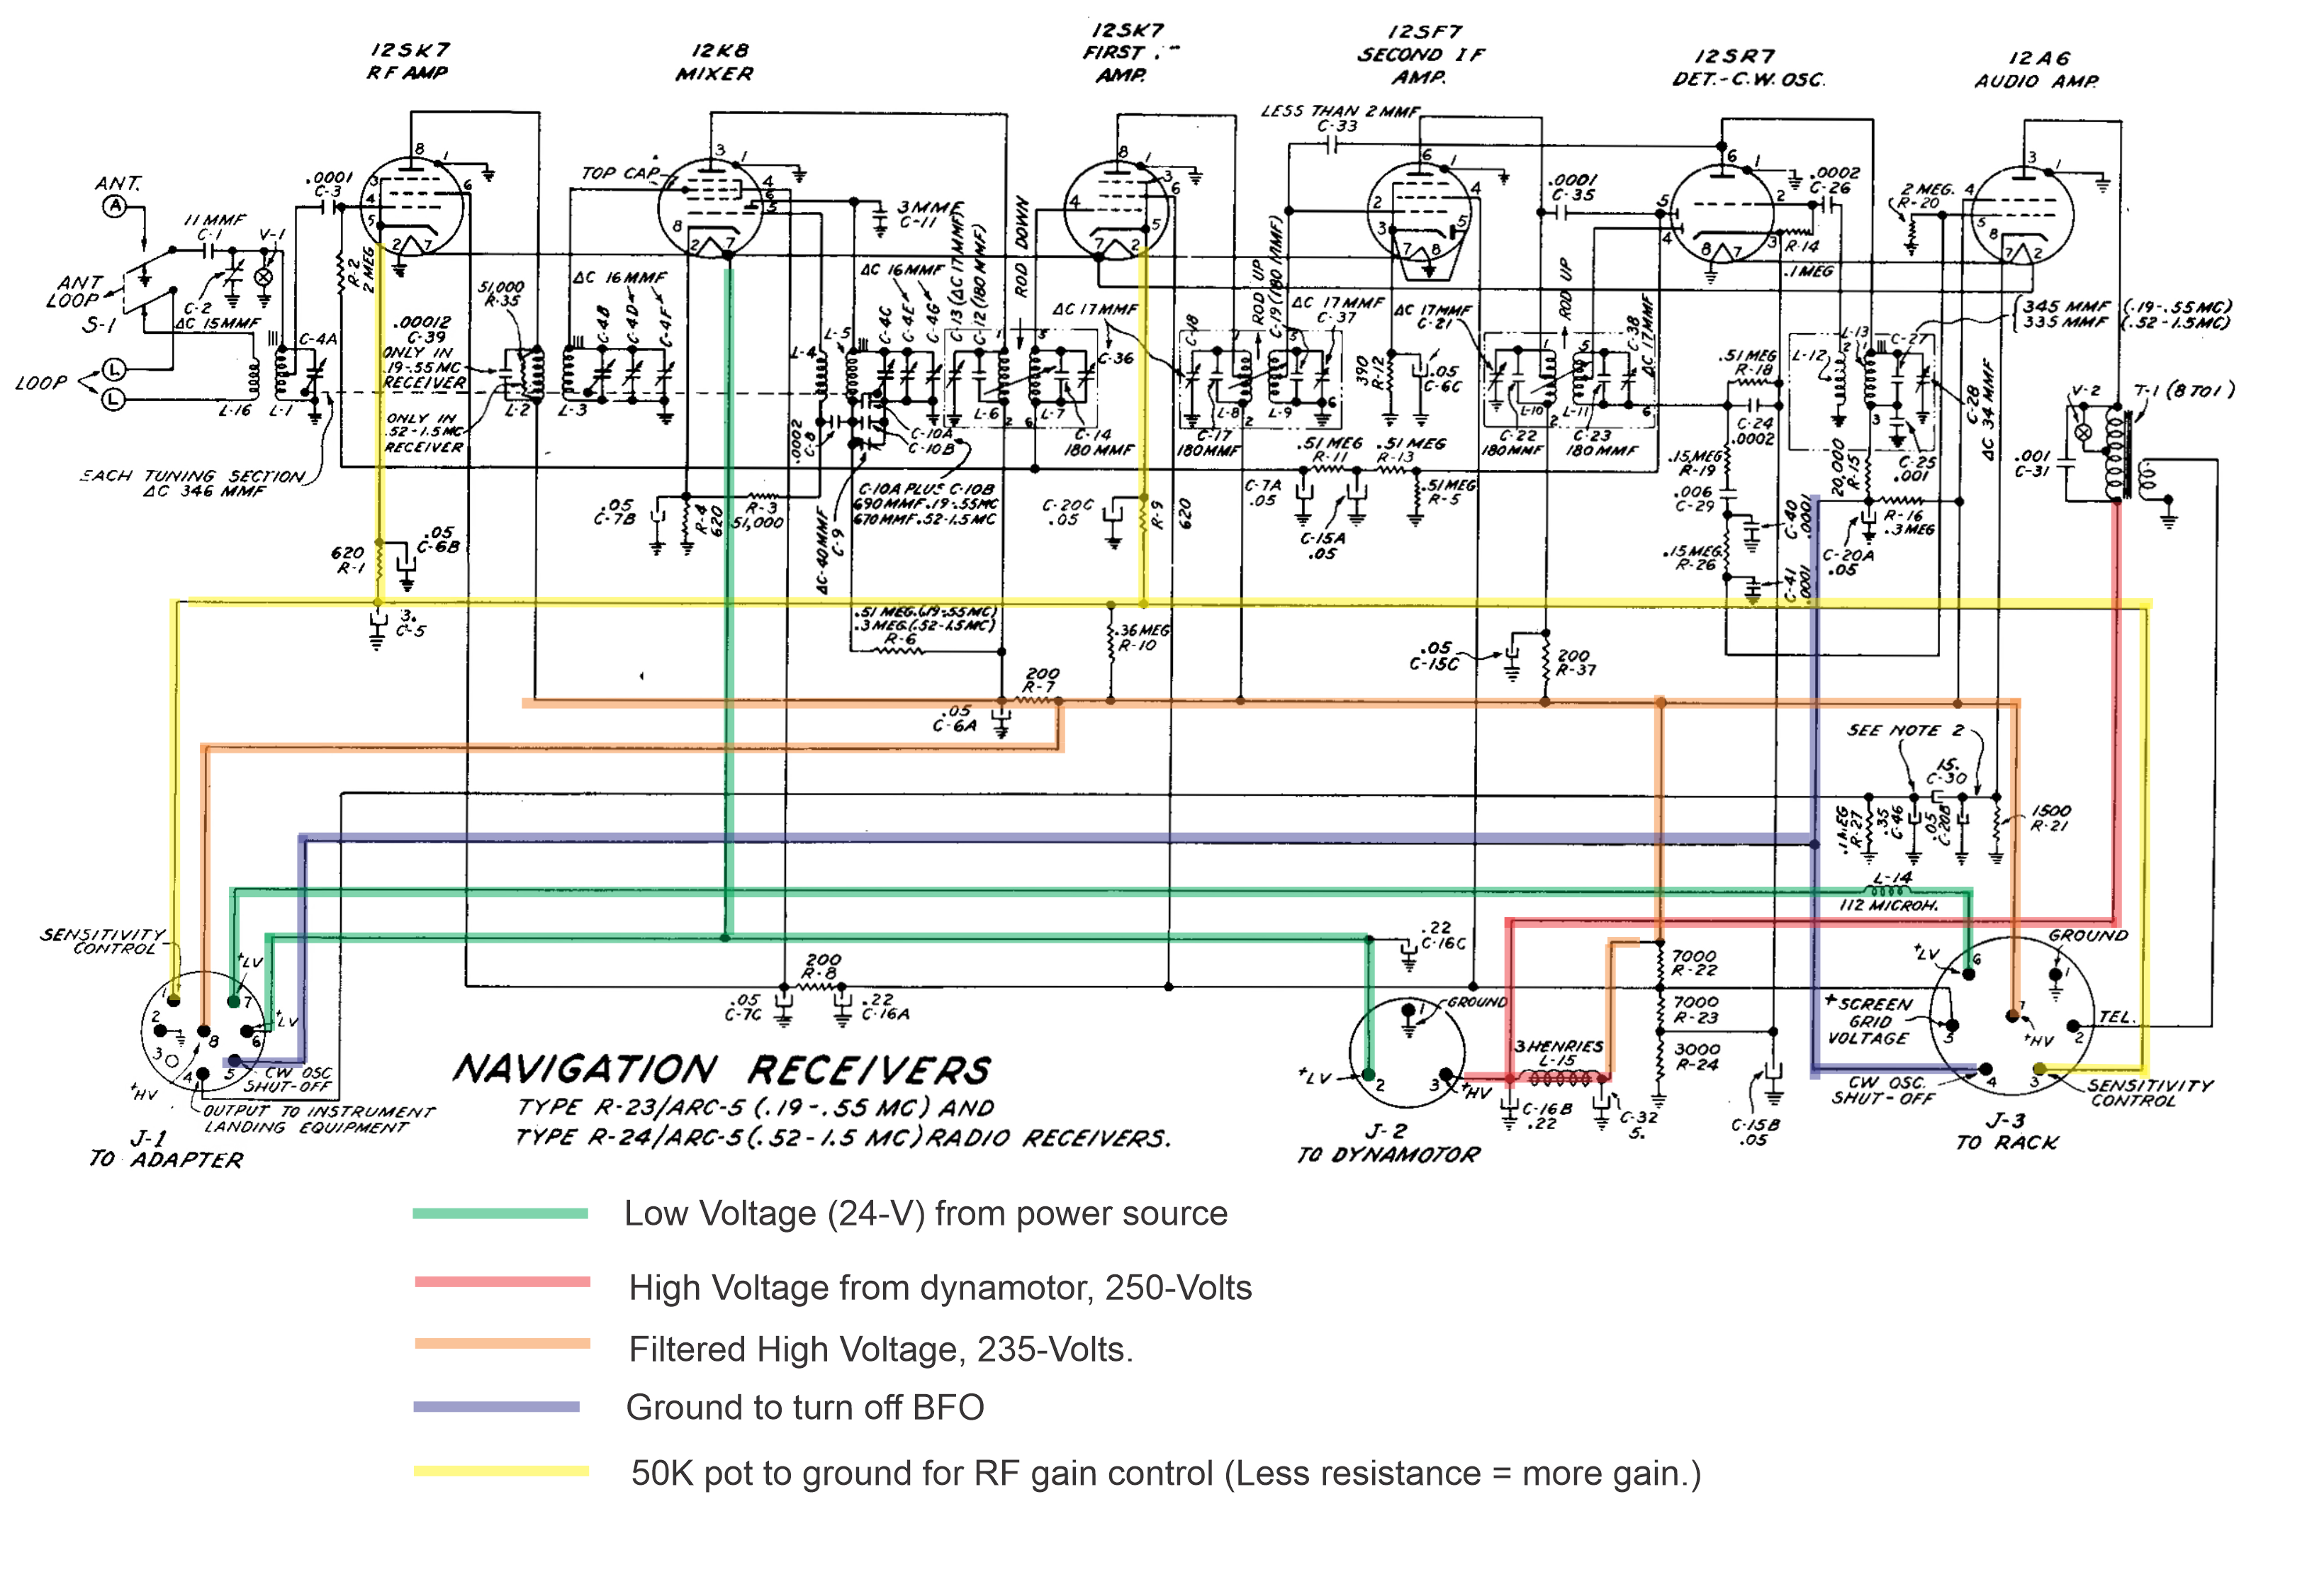 12SK7
RF AMP
12K8
MIXER
12SK7
FIRST
AMP.
12SF7
SECOND IF
AMP.
12SR7
DET.-C.W. OSC.
12A6
AUDIO AMP.
LESS THAN 2 MMF
C-33
ANT.
A
.0001
C-3
11 MMF
C-1
V-1
C-2
ΔC 15MMF
ANT
LOOP
S-1
LOOP
L
L
L-16
L-1
C-4A
R-2
2 MEG
EACH TUNING SECTION
ΔC 346 MMF
.00012
C-39
ONLY IN
.19-.55 MC
RECEIVER
ONLY IN
.52-1.5 MC
RECEIVER
51,000
R-35
L-2
L-3
TOP CAP
ΔC 16MMF
C-4B
C-4D
C-4F
3 MMF
C-11
ΔC 16 MMF
C-4C
C-4E
C-4G
C-13 (ΔC 17 MMF)
C-12 (180 MMF)
ROD DOWN
L-4
L-5
L-6
L-7
C-36
C-14
180 MMF
ΔC 17MMF
.0002
C-8
C-10A
C-10B
C-10A PLUS C-10B
690 MMF .19-.55MC
670 MMF .52-1.5 MC
ΔC-40MMF
C-9
.05
C-7B
R-4
620
R-3
51,000
620
R-1
.05
C-6B
3.
C-5
.51 MEG.(.19-.55MC)
.3 MEG.(.52-1.5MC)
R-6
200
R-7
.05
C-6A
C-20C
.05
R-9
620
.36 MEG
R-10
C-18
C-17
180MMF
L-8
L-9
ROD UP
C-19 (180 MMF)
ΔC 17 MMF
C-37
390
R-12
.05
C-6C
ΔC 17MMF
C-21
.0001
C-35
ROD UP
C-38
ΔC 17MMF
L-10
L-11
C-22
180MMF
C-23
180 MMF
.51 MEG
R-11
.51 MEG
R-13
.51 MEG
R-5
C-7A
.05
C-15A
.05
.05
C-15C
200
R-37
.0002
C-26
R-14
.1 MEG
2 MEG.
R-20
345 MMF (.19-.55 MC)
335 MMF (.52-1.5 MC)
L-12
L-13
C-27
C-28
ΔC 34 MMF
.51 MEG
R-18
C-24
.0002
.15 MEG
R-19
.006
C-29
.15 MEG.
R-26
C-40
.0001
C-41
.0001
20,000
R-15
C-25
.001
R-16
.3 MEG
C-20A
.05
V-2
T-1 (8 TO 1)
.001
C-31
SEE NOTE 2
15.
C-30
.1 MEG
R-27
.35
C-46
.05
C-20B
1500
R-21
L-14
112 MICROH.
SENSITIVITY
CONTROL
+LV
+LV
+HV
CW OSC
SHUT-OFF
OUTPUT TO INSTRUMENT
LANDING EQUIPMENT
J-1
TO ADAPTER
200
R-8
.05
C-7C
.22
C-16A
.22
C-16C
GROUND
+LV
+HV
J-2
TO DYNAMOTOR
3 HENRIES
L-15
C-16B
.22
C-32
5.
7000
R-22
7000
R-23
3000
R-24
C-15B
.05
+LV
GROUND
+ SCREEN
GRID
VOLTAGE
+HV
TEL.
CW OSC.
SHUT-OFF
SENSITIVITY
CONTROL
J-3
TO RACK
NAVIGATION RECEIVERS
TYPE R-23/ARC-5 (.19-.55 MC) AND
TYPE R-24/ARC-5 (.52-1.5 MC) RADIO RECEIVERS.
Low Voltage (24-V) from power source
High Voltage from dynamotor, 250-Volts
Filtered High Voltage, 235-Volts.
Ground to turn off BFO
50K pot to ground for RF gain control (Less resistance = more gain.)